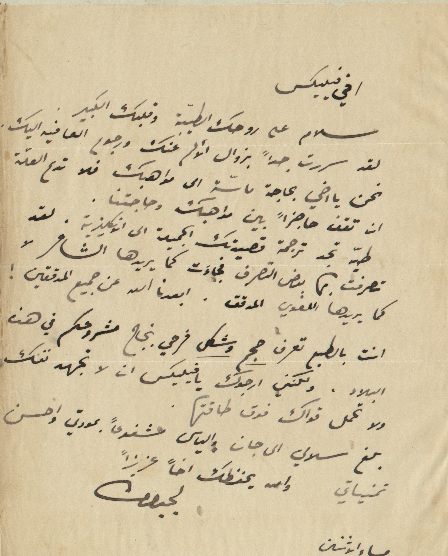 اخي فيليكس
سلام على روحك الطيبة وقلبك الكبير.
لقد سررت جداً بزوال الألم عنك ورجوع العافية اليك.
نحن يا اخي بحاجة ماسّة الى مواهبك فلا تدع العلّة
ان تقف حاجزاً بين مواهبك وحاجتنا.
طيّه تجد ترجمة قصيدتك الجميلة الى الانكليزية. لقد
تصرفت بها بعض التصرف فجاءت كما يريدها الشاعر لا
كما يريدها اللغوي المدقق. ابعدنا الله عن جميع المدققين!
انت بالطبع تعرف حجم وشكل فرحي بنجاح مشروعكم في هذه
البلاد. ولكنني ارجوك يا فيليكس ان لا تجهد نفسك
ولا تحمل قواك فوق طاقتها.
بلغ سلامي الى جان والياس مشفوعاً بمودتي واحسن
تمنياتي والله يحفظك اخاً عزيزاً
لجبران
مساء الاثنين